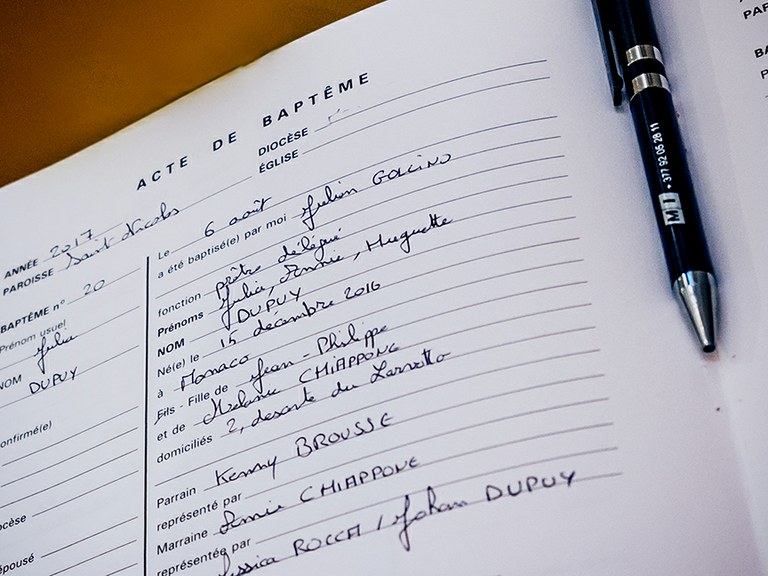 ACTE DE BAPTÊME
DIOCÈSE
ÉGLISE
ANNÉE 2017
PAROISSE Saint Nicolas
BAPTÊME n° 20
Prénom usuel
Julia
NOM
DUPUY
onfirmé(e)
ocèse
épousé
Le 6 août
a été baptisé(e) par moi Julien GOLLINO
fonction prêtre délégué
Prénoms Julia, Annie, Huguette
NOM DUPUY
Né(e) le 15 décembre 2016
à Monaco
Fils - Fille de Jean-Philippe
et de Mélanie CHIAPPONE
domiciliés 2, descente du Larvotto
Parrain Kenny BROUSSE
représenté par
Marraine Annie CHIAPPONE
représentée par
essica ROCCA / Johan DUPUY
MI +377 92 05 28 11
PAR
BA
P